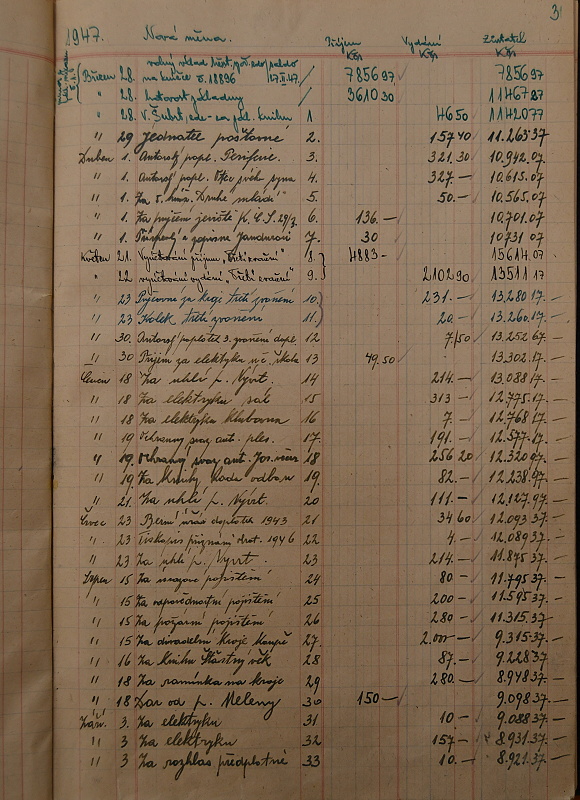 3
1947. Nová měna. Příjem Vydání Zůstatek
Kčs Kčs Kčs
volný vklad
Březen 28. na knížce č. 18896 17.II.47. / 785697 785697
" 28. hotovost pokladny / 361030 1146727
" 28. V. Šubrt 1 4650 1142077
" 29 Jednatel poštovné 2. 15740 11.26337
Duben 1. Autorský popl. Periferie. 3. 321.30 10.942.07.
" 1. Autorský popl. 4. 327.— 10.615.07
" 1. Za "Druhé mládí" 5. 50.— 10.565.07
" 1. Za půjčení jeviště K.C.S. 29/3 6. 136.— 10.701.07
" 1. 7. 30 10731 07
Květen 21. Vyúčtování příjem "Třetí zvonění" 8. 4883— 15614.07
" 22. vyúčtování vydání "Třetí zvonění" 9. 210290 13511 17
" 23 Půjčovné za kroje třetí zvonění 10. 231.— 13.280 17.
" 23 Kolek třetí zvonění 11. 20.— 13.260.17.
" 30. Autorský poplatek 3. zvonění dopl. 12 7/50 13.252 67.
" 30 Příjem za elektriku 13 49.50 13.302.17.
Červen 18 Za uhlí p. Nyvt. 14 214.— 13.088 17.
" 18 Za elektriku sál 15 313— 12.775.17.
" 18 Za elektriku klubovna 16 7.— 12.768 17.
" 19 Ochranný svaz aut. ples. 17. 191.— 12.577.17.
" 19. Ochranný svaz aut. Jos. večer 18 256 20 12.32097
" 19 Za knihy 19. 82.— 12.238.97
" 21. Za uhlí p. Nyvt. 20 111.— 12.127.97
Červec 23 Berní úřad doplatek 1943 21 3460 12.093 37
" 23. Tiskopis přiznání 1946 22 4.— 12.08937.
" 23 Za uhlí p. Nyvt. 23 214.— 11.875 37.
Srpen 15 Za úrazové pojištění 24 80— 11.79537.
" 15 Za odpovědnostní pojištění 25 200— 11.59537.
" 15 Za požární pojištění 26 280— 11.315.37.
" 15 Za divadelní kroje koupě 27. 2.000— 9.31537.
" 16 Za knihu Šťastný věk 28 87.— 9.22837.
" 18 Za ramínka na kroje 29 280.— 8.94837.
" 18 Dar od p. Meleny 30 150— 9.09837.
Září. 3. Za elektriku 31 10— 9.08837.
" 3 Za elektriku 32 157— 8.931.37.
" 3 Za rozhlas předplatné 33 10.— 8.921.37.